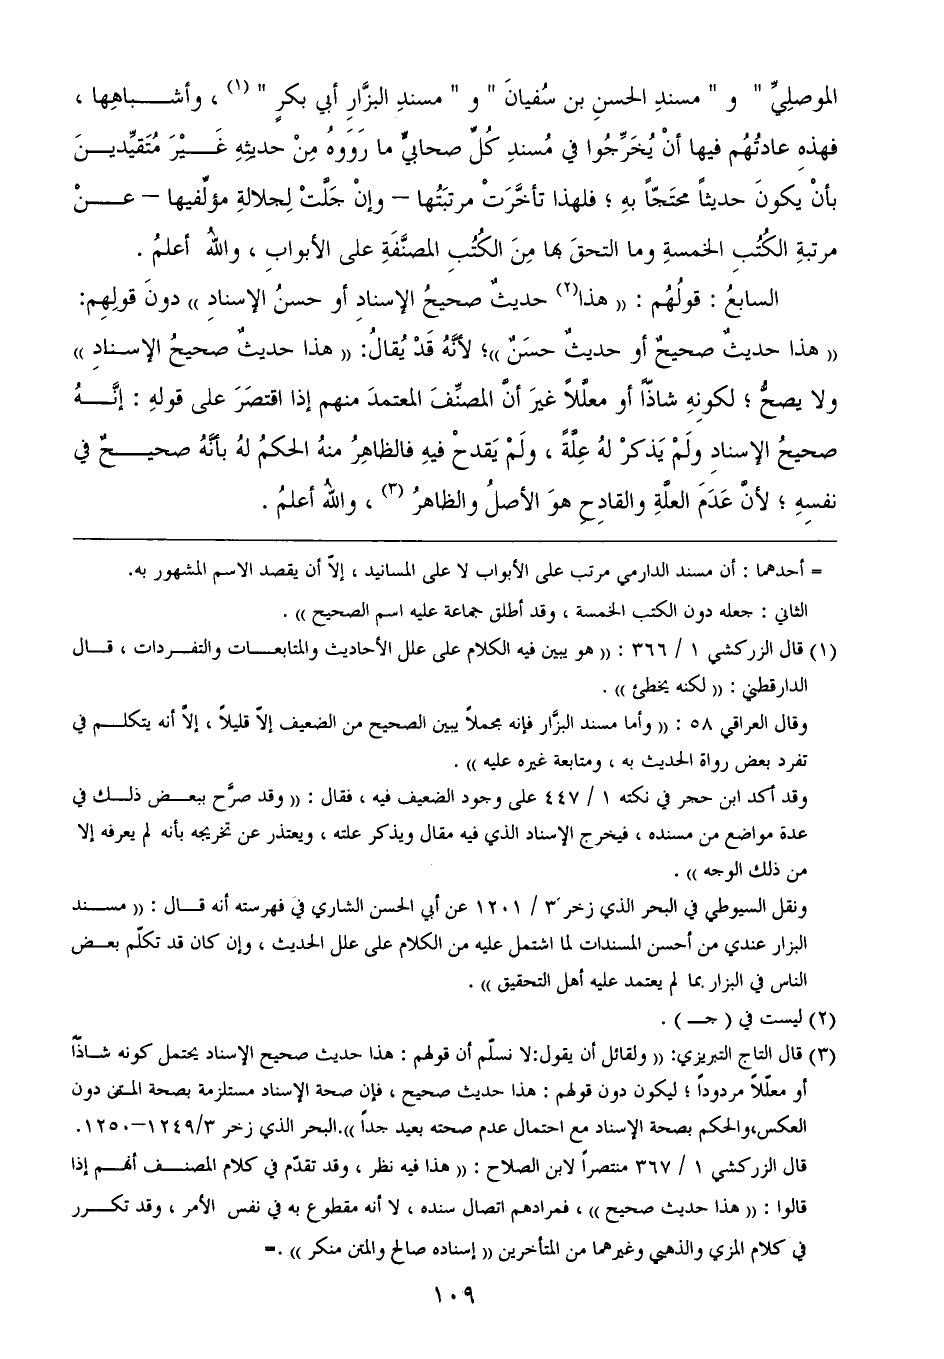 الموصليِّ " و " مسندِ الحسنِ بن سُفيانَ " و " مسندِ البزَّارِ أبي بكرٍ " (١) ، وأشـــباهِها ،
فهذهِ عادتُهُم فيها أنْ يُخَرِّجُوا في مُسندِ كُلِّ صحابيٍّ ما رَوَوهُ مِنْ حديثِهِ غَـــيْرَ مُتَقيِّديـــنَ
بأنْ يكونَ حديثاً محتجّاً بهِ ؛ فلهذا تأخَّرَتْ مرتبَتُها – وإنْ جَلَّتْ لِجلالةِ مؤلّفيها – عـــنْ
مرتبةِ الكُتُبِ الخمسةِ وما التحقَ بها مِنَ الكُتُبِ المصنَّفَةِ على الأبوابِ ، واللهُ أعلمُ .
السابعُ : قولُهُم : (( هذا(٢) حديثٌ صحيحُ الإسنادِ أو حسنُ الإسنادِ )) دونَ قولِهِم:
(( هذا حديثٌ صحيحٌ أو حديثٌ حسَنٌ ))؛ لأنَّهُ قَدْ يُقالُ: (( هذا حديثٌ صحيحُ الإسـنادِ ))
ولا يصحُّ ؛ لكونِهِ شاذّاً أو معلّلاً غيرَ أنَّ المصنِّفَ المعتمدَ منهم إذا اقتصَرَ على قولهِ : إنَّـــهُ
صحيحُ الإسنادِ ولَمْ يَذكرْ لهُ عِلَّةً ، ولَمْ يَقدحْ فيهِ فالظاهِرُ منهُ الحكمُ لهُ بأنَّهُ صحيـــحٌ في
نفسِهِ ؛ لأنَّ عَدَمَ العلَّةِ والقادحِ هوَ الأصلُ والظاهرُ (٣) ، واللهُ أعلمُ .
= أحدهما : أن مسند الدارمي مرتب على الأبواب لا على المسانيد ، إلاّ أن يقصد الاسم المشهور به.
الثاني : جعله دون الكتب الخمسة ، وقد أطلق جماعة عليه اسم الصحيح )) .
(١) قال الزركشي ١ / ٣٦٦ : (( هو يبين فيه الكلام على علل الأحاديث والمتابعـــات والتفـردات ، قـــال
الدارقطني : (( لكنه يخطئ )) .
وقال العراقي ٥٨ : (( وأما مسند البزَّار فإنه مجملاً يبين الصحيح من الضعيف إلاّ قليلاً ، إلاّ أنه يتكلـــم في
تفرد بعض رواة الحديث به ، ومتابعة غيره عليه )) .
وقد أكد ابن حجر في نكته ١ / ٤٤٧ على وجود الضعيف فيه ، فقال : (( وقد صرَّح ببعـــض ذلـــك في
عدة مواضع من مسنده ، فيخرج الإسناد الذي فيه مقال ويذكر علته ، ويعتذر عن تخريجه بأنه لم يعرفه إلا
من ذلك الوجه )) .
ونقل السيوطي في البحر الذي زخر ٣ / ١٢٠١ عن أبي الحسن الشاري في فهرسته أنه قـــال : (( مســـند
البزار عندي من أحسن المسندات لما اشتمل عليه من الكلام على علل الحديث ، وإن كان قد تكلّم بعـــض
الناس في البزار بما لم يعتمد عليه أهل التحقيق )) .
(٢) ليست في ( جـ ) .
(٣) قال التاج التبريزي: (( ولقائل أن يقول:لا نسلّم أن قولهم : هذا حديث صحيح الإسناد يحتمل كونه شـاذّاً
أو معلّلاً مردوداً ؛ ليكون دون قولهم : هذا حديث صحيح ، فإن صحة الإسناد مستلزمة بصحة المتن دون
العكس،والحكم بصحة الإسناد مع احتمال عدم صحته بعيد جداً )).البحر الذي زخر ١٢٤٩/٣–١٢٥٠.
قال الزركشي ١ / ٣٦٧ منتصراً لابن الصلاح : (( هذا فيه نظر ، وقد تقدّم في كلام المصنـــف أنهـم إذا
قالوا : (( هذا حديث صحيح )) ، فمرادهم اتصال سنده ، لا أنه مقطوع به في نفس الأمر ، وقد تكـــرر
في كلام المزي والذهبي وغيرهما من المتأخرين (( إسناده صالح والمتن منكر )) .=
١٠٩